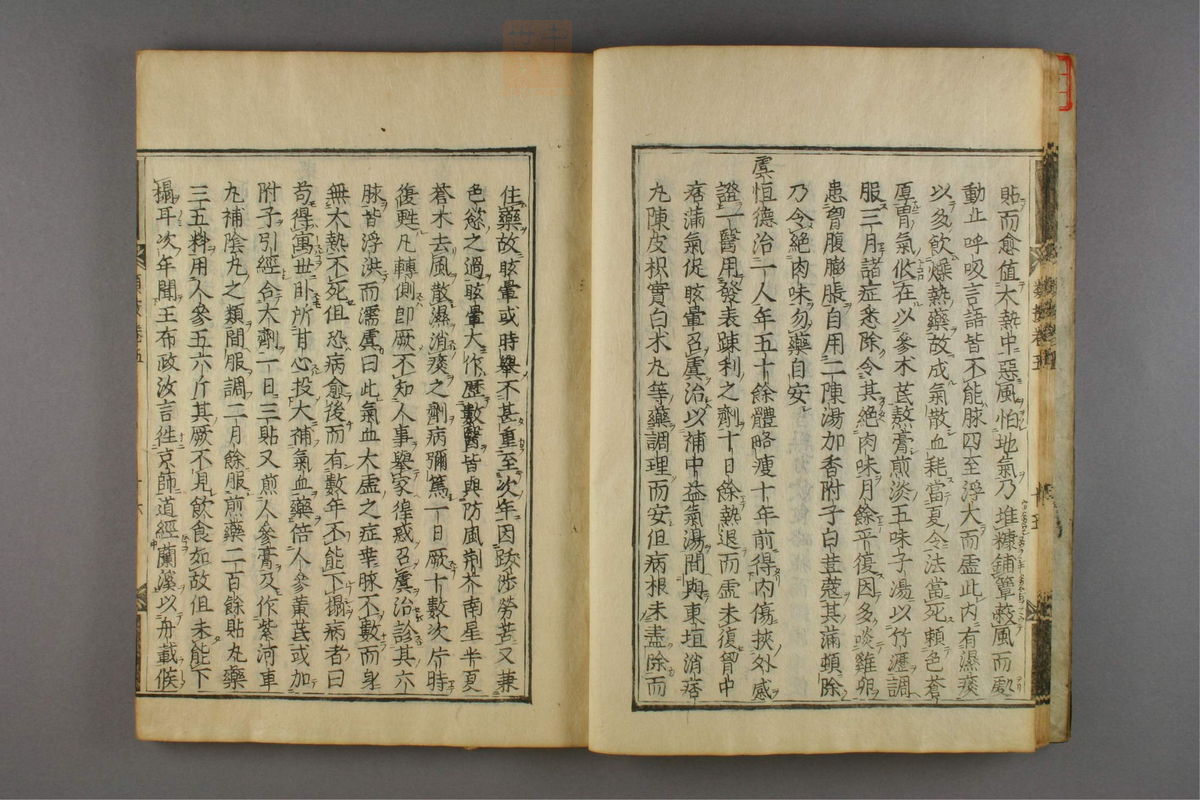 貼而愈值大熱中惡風怕地氣乃堆糠鋪簟蔽風而處
動止呼吸言語皆不能脉四至浮大而虛此内有濕痰
以多飲燥熱藥故成氣散血耗當夏令法當死賴色蒼
厚胃氣攸在以參术芪熬膏煎淡五味子湯以竹瀝調
服三月諸症悉除令其絕肉味月餘平復因多啖雞卵
患胷腹膨脹自用二陳湯加香附子白荳蔻其滿頓除
乃令絕肉味勿藥自安
虞恒德治一人年五十餘體略瘦十年前得内傷挾外感
證一醫用發表踈利之劑十日餘熱退而虛未復胷中
痞滿氣促眩暈召虞治以補中益氣湯間與東垣消痞
九陳皮枳實白术丸等藥調理而安但病根未盡除而
住藥故眩暈或時舉不甚重至次年因跋涉勞苦又兼
色慾之過眩暈大作歷數醫皆與防風荊芥南星半夏
蒼术去風散濕消痰之劑病彌篤一日厥十數次片時
復甦凡轉側卽厥不知人事舉家徨惑召虞治診其六
脉皆浮洪而濡虞曰此氣血大虛之症幸脉不數而身
無大熱不死但恐病愈後而有數年不能下榻病者曰
苟得寓世卧所甘心投大補氣血藥倍人參黃芪或加
附子引經合大劑一日三貼又煎人參膏及作紫河車
丸補陰丸之類間服調二月餘服煎藥二百餘貼丸藥
三五料用人參五六斤其厥不見飲食如故但未能下
榻耳次年聞王布政汝言徃京師道經蘭溪以舟載候